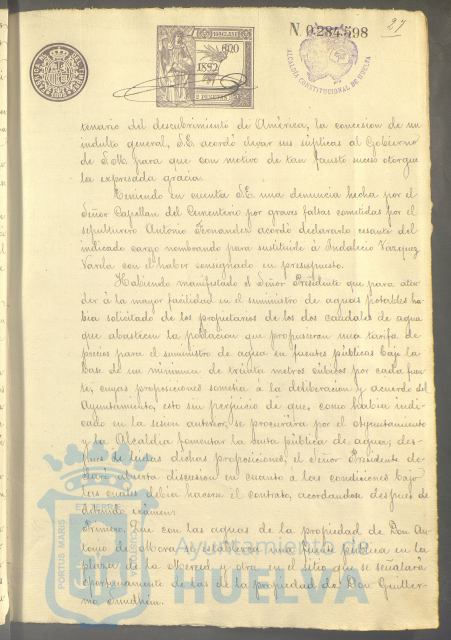 Nº 0.284.598
27
11ª CLASE
1892
2 PESETAS
ALCALDÍA CONSTITUCIONAL DE HUELVA
tenario del descubrimiento de América, la concesion de un
indulto general, S.E. acordó elevar sus súplicas al Gobierno
de S.M. para que con motivo de tan fausto suceso otorgue
la expresada gracia.
Teniendo en cuenta S.E. una denuncia hecha por el
Señor Capellan del Cementerio por graves faltas cometidas por el
sepulturero Antonio Fernandez acordó declararlo cesante del
indicado cargo nombrando para sustituirle á Indalecio Vazquez
Varela con el haber consignado en presupuesto.
Habiendo manifestado el Señor Presidente que para aten-
der á la mayor facilidad en el suministro de aguas potables ha-
bia solicitado de los propietarios de los dos caudales de agua
que abastecen la poblacion que propusieran una tarifa de
precios para el suministro de agua en fuentes públicas bajo la
base de un minimun de treinta metros cúbicos por cada fuen-
te, cuyas proposiciones sometia á la deliberacion y acuerdo del
Ayuntamiento, esto sin perjuicio de que, como habia indi-
cado en la sesion anterior, se procurára por el Ayuntamiento
y la Alcaldia fomentar la busca pública de agua; des-
pues de leidas dichas proposiciones, el Señor Presidente de-
claró abierta discusion en cuanto á las condiciones bajo
las cuales debia hacerse el contrato, acordandose despues de
detenido examen:
Primero. Que con las aguas de la propiedad de Don An-
tonio de Mora se establezca una fuente pública en la
plaza de la Merced y otra en el sitio que se señalará
oportunamente de las de la propiedad de Don Guiller-
mo Sundheim.
PORTUS MARIS
Ayuntamiento de
HUELVA